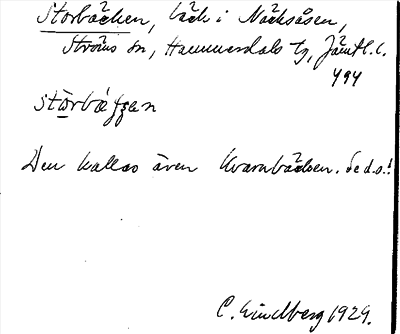 Storbäcken, bäck i Näcksåsen,
Ströms sn, Hammerdals tg, Jämtl. l.
494
stōrbǽɟɟen
Den kallas även Kvarnbäcken. Se d.o.!
C. Lindberg 1929.